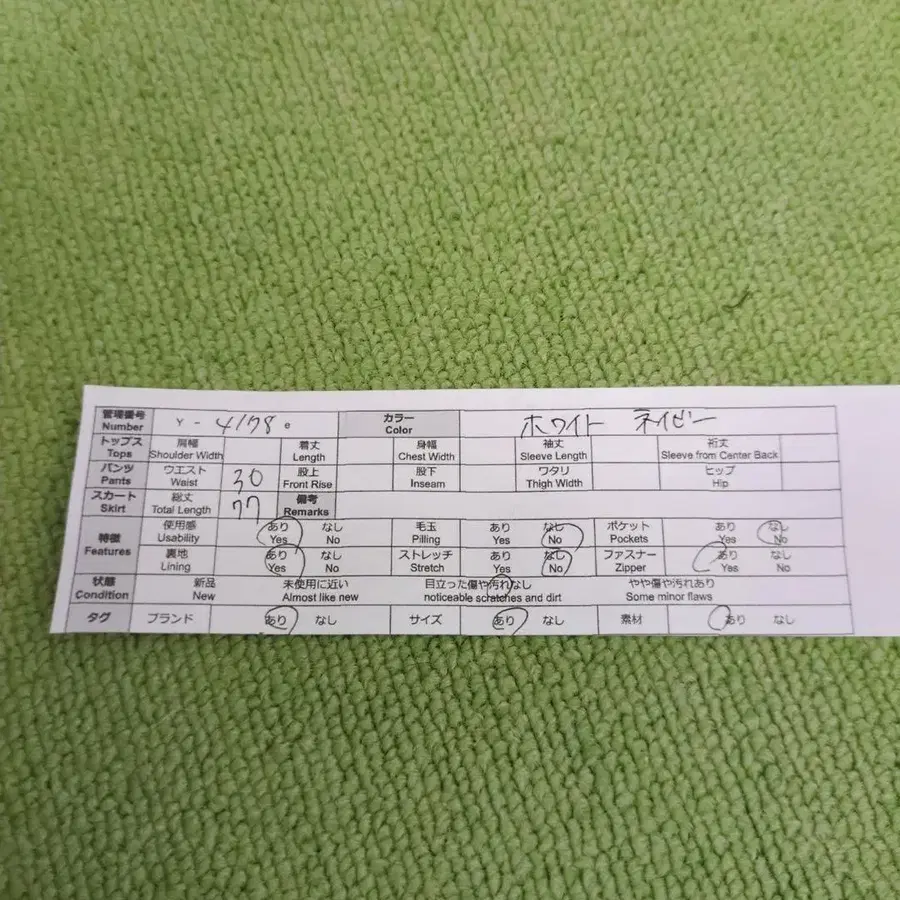 管理番号 Number Y - 4178 e カラー Color ホワイト ネイビー
トップス Tops 肩幅 Shoulder Width 着丈 Length 身幅 Chest Width 袖丈 Sleeve Length 裄丈 Sleeve from Center Back
パンツ Pants ウエスト Waist 30 股上 Front Rise 股下 Inseam ワタリ Thigh Width ヒップ Hip
スカート Skirt 総丈 Total Length 77 備考 Remarks
特徴 Features 使用感 Usability あり Yes なし No 毛玉 Pilling あり Yes なし No ポケット Pockets あり Yes なし No
裏地 Lining あり Yes なし No ストレッチ Stretch あり Yes なし No ファスナー Zipper あり Yes なし No
状態 Condition 新品 New 未使用に近い Almost like new 目立った傷や汚れなし noticeable scratches and dirt やや傷や汚れあり Some minor flaws
タグ ブランド あり なし サイズ あり なし 素材 あり なし